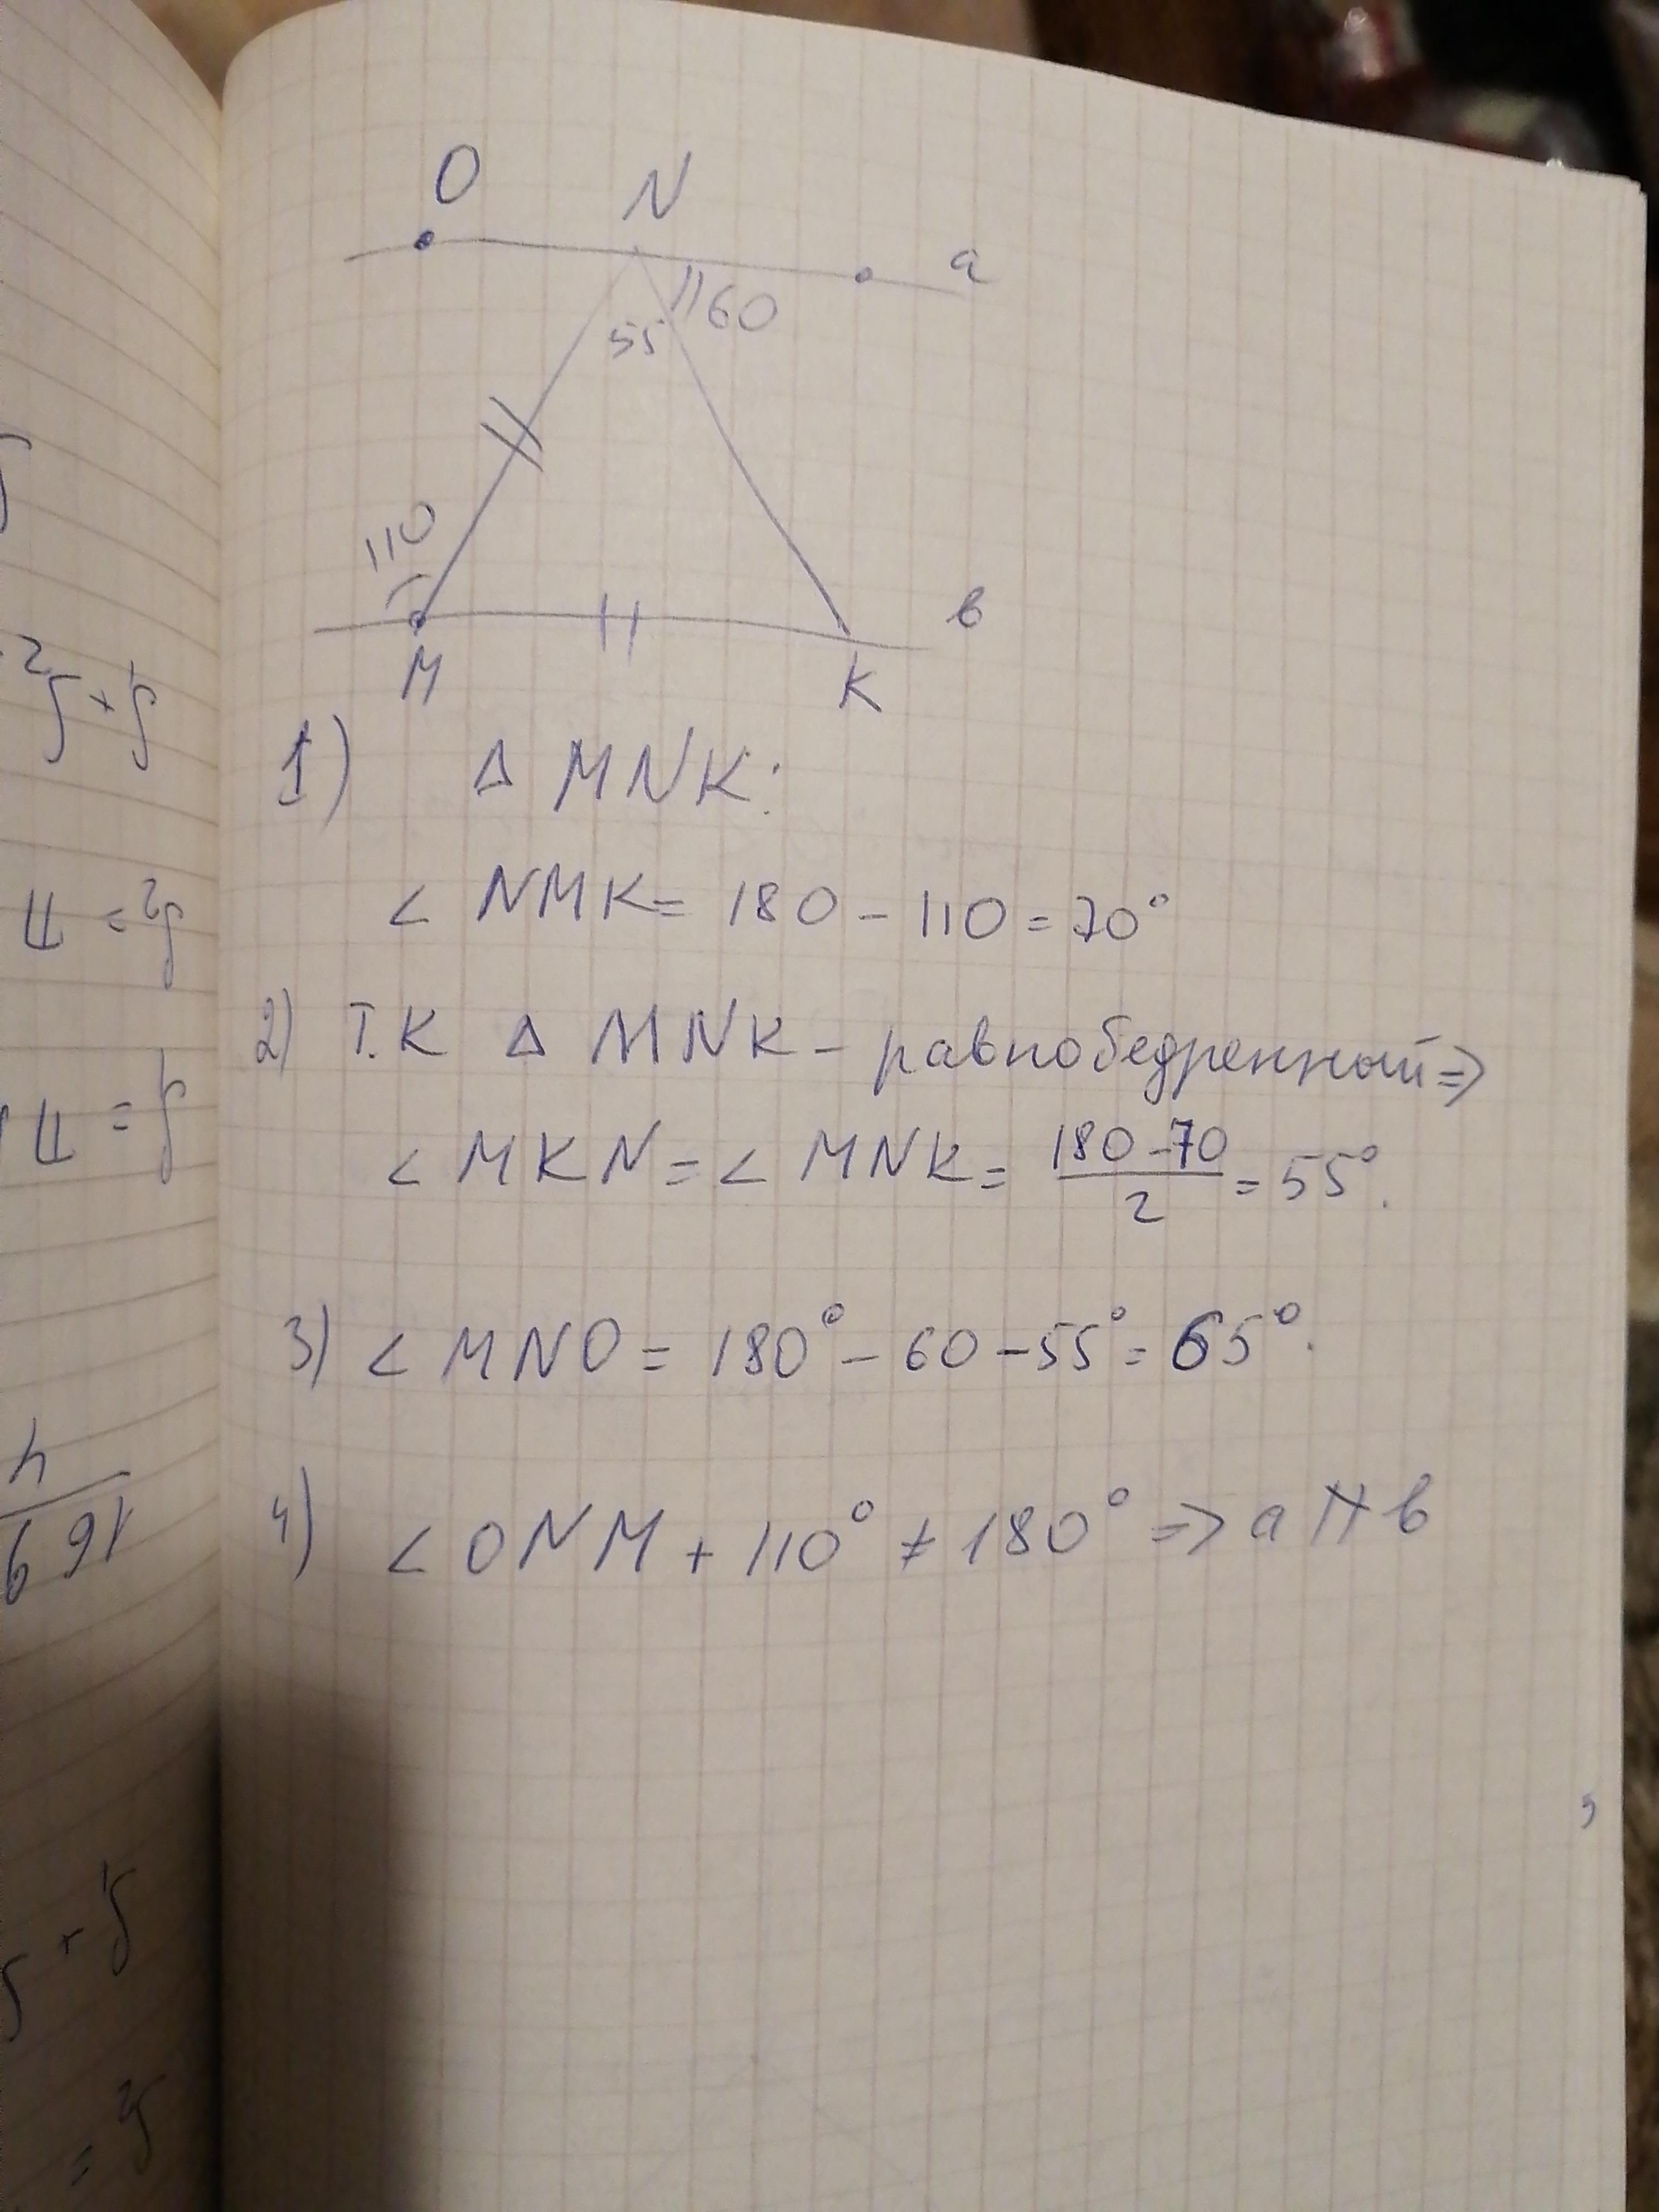 O N
a
55 60
110
M K
в
1) Δ MNK:
< NMK = 180 - 110 = 70°
2) Т.К Δ MNK - равнобедренный =>
< MKN = < MNK = (180 - 70)/2 = 55°.
3) < MNO = 180° - 60 - 55° = 65°.
4) < ONM + 110° ≠ 180° => a ∦ в